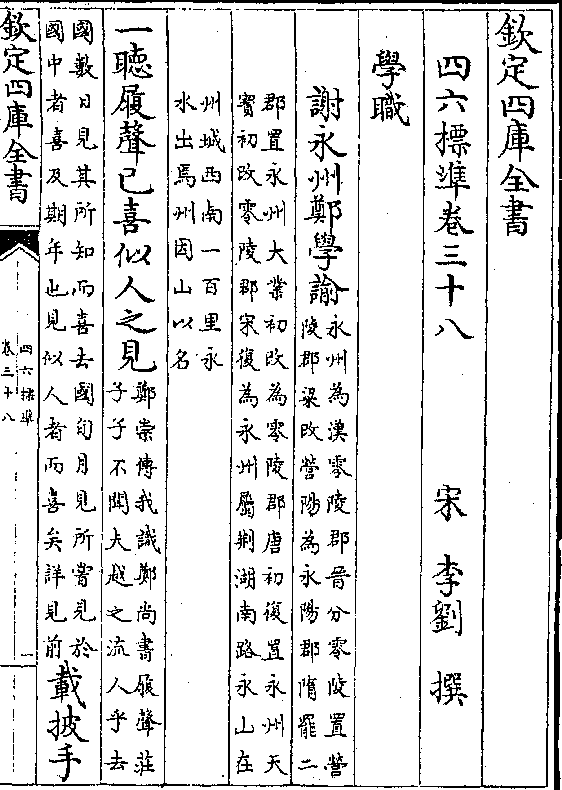 欽定四庫全書
四六標準卷三十八
宋 李劉 撰
學職
謝永州鄭學諭
永州為漢零陵郡晉分零陵置營
陵郡梁改營陽為永陽郡隋罷二
郡置永州大業初改為零陵郡唐初復置永州天
寳初改零陵郡宋復為永州屬荆湖南路永山在
州城西南一百里永
水出焉州因山以名
一聽履聲已喜似人之見
鄭崇傳我識鄭尚書履聲莊
子子不聞夫越之流人乎去
國數日見其所知而喜去國旬月見所嘗見於
國中者喜及期年也見似人者而喜矣詳見前
載披手
欽定四庫全書
四六標準
卷三十八
一